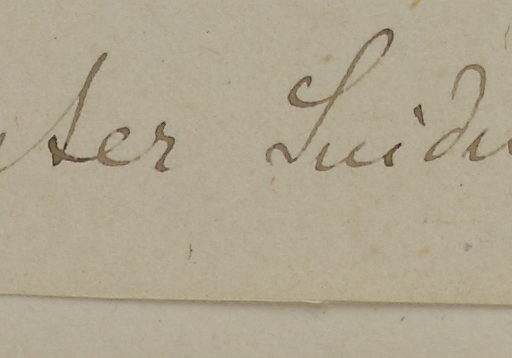 ster Suidu